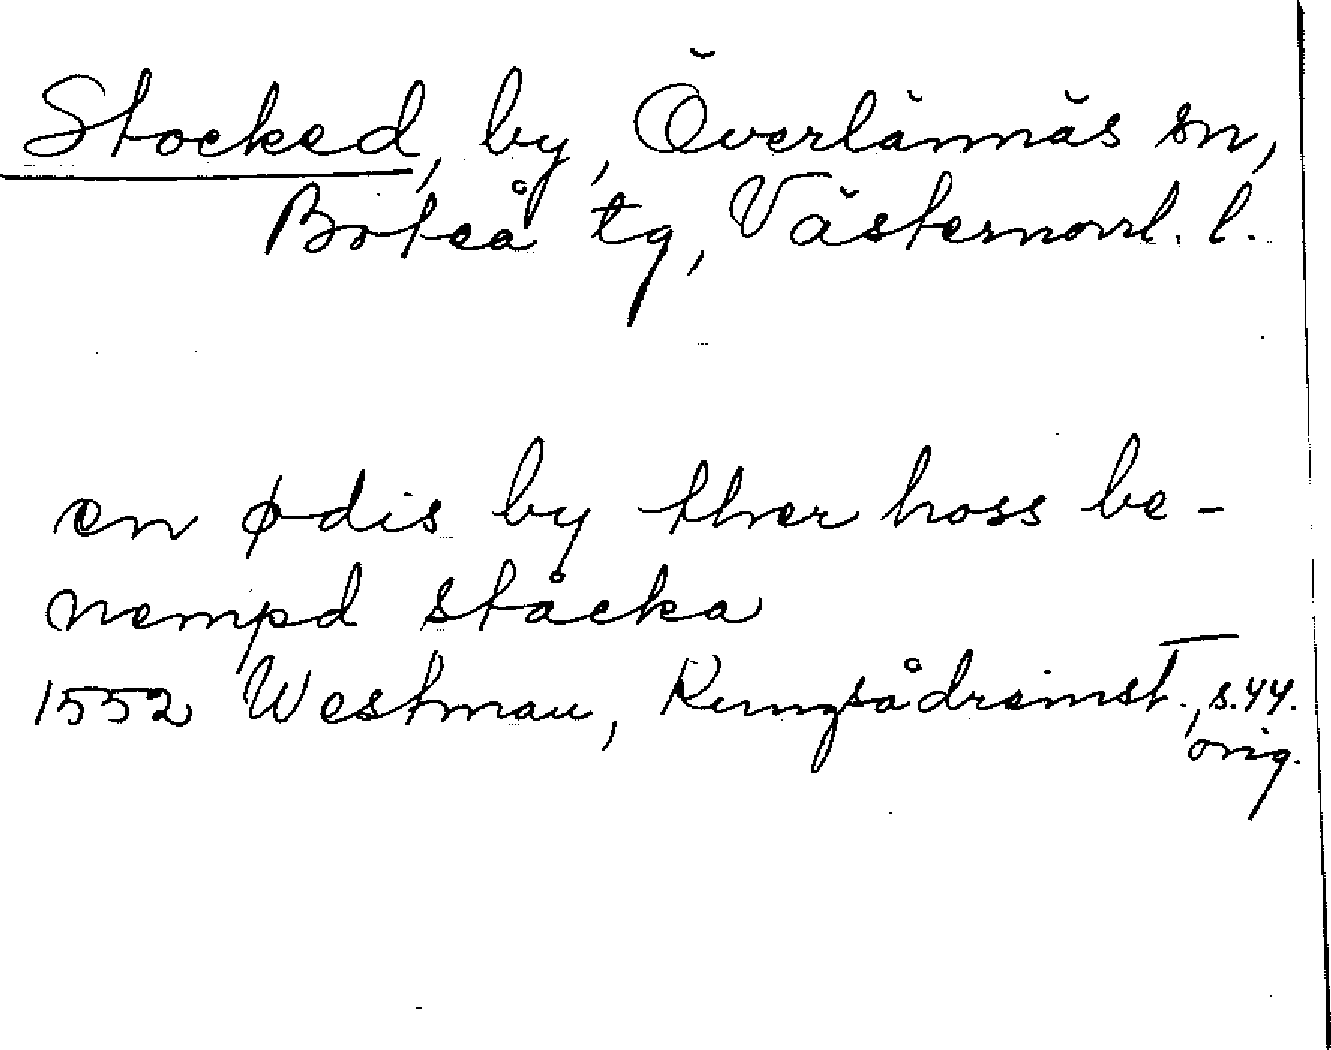 Stocked, by, Överlännäs sn,
Boteå tg, Västernorrl. l.
en ødis by ther hoss be-
nempd ståcka
1552 Westman, Kungsådreinst., s. 44.
orig.